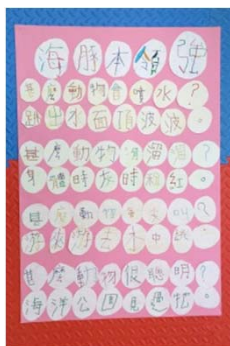 海豚本領強
甚麼動物會噴水？
跳出水面頂波波。
甚麼動物滑溜溜？
身體時灰時粉紅。
甚麼動物叫？
游來游去水中跳。
甚麼動物很聰明？
海洋公園見過牠。